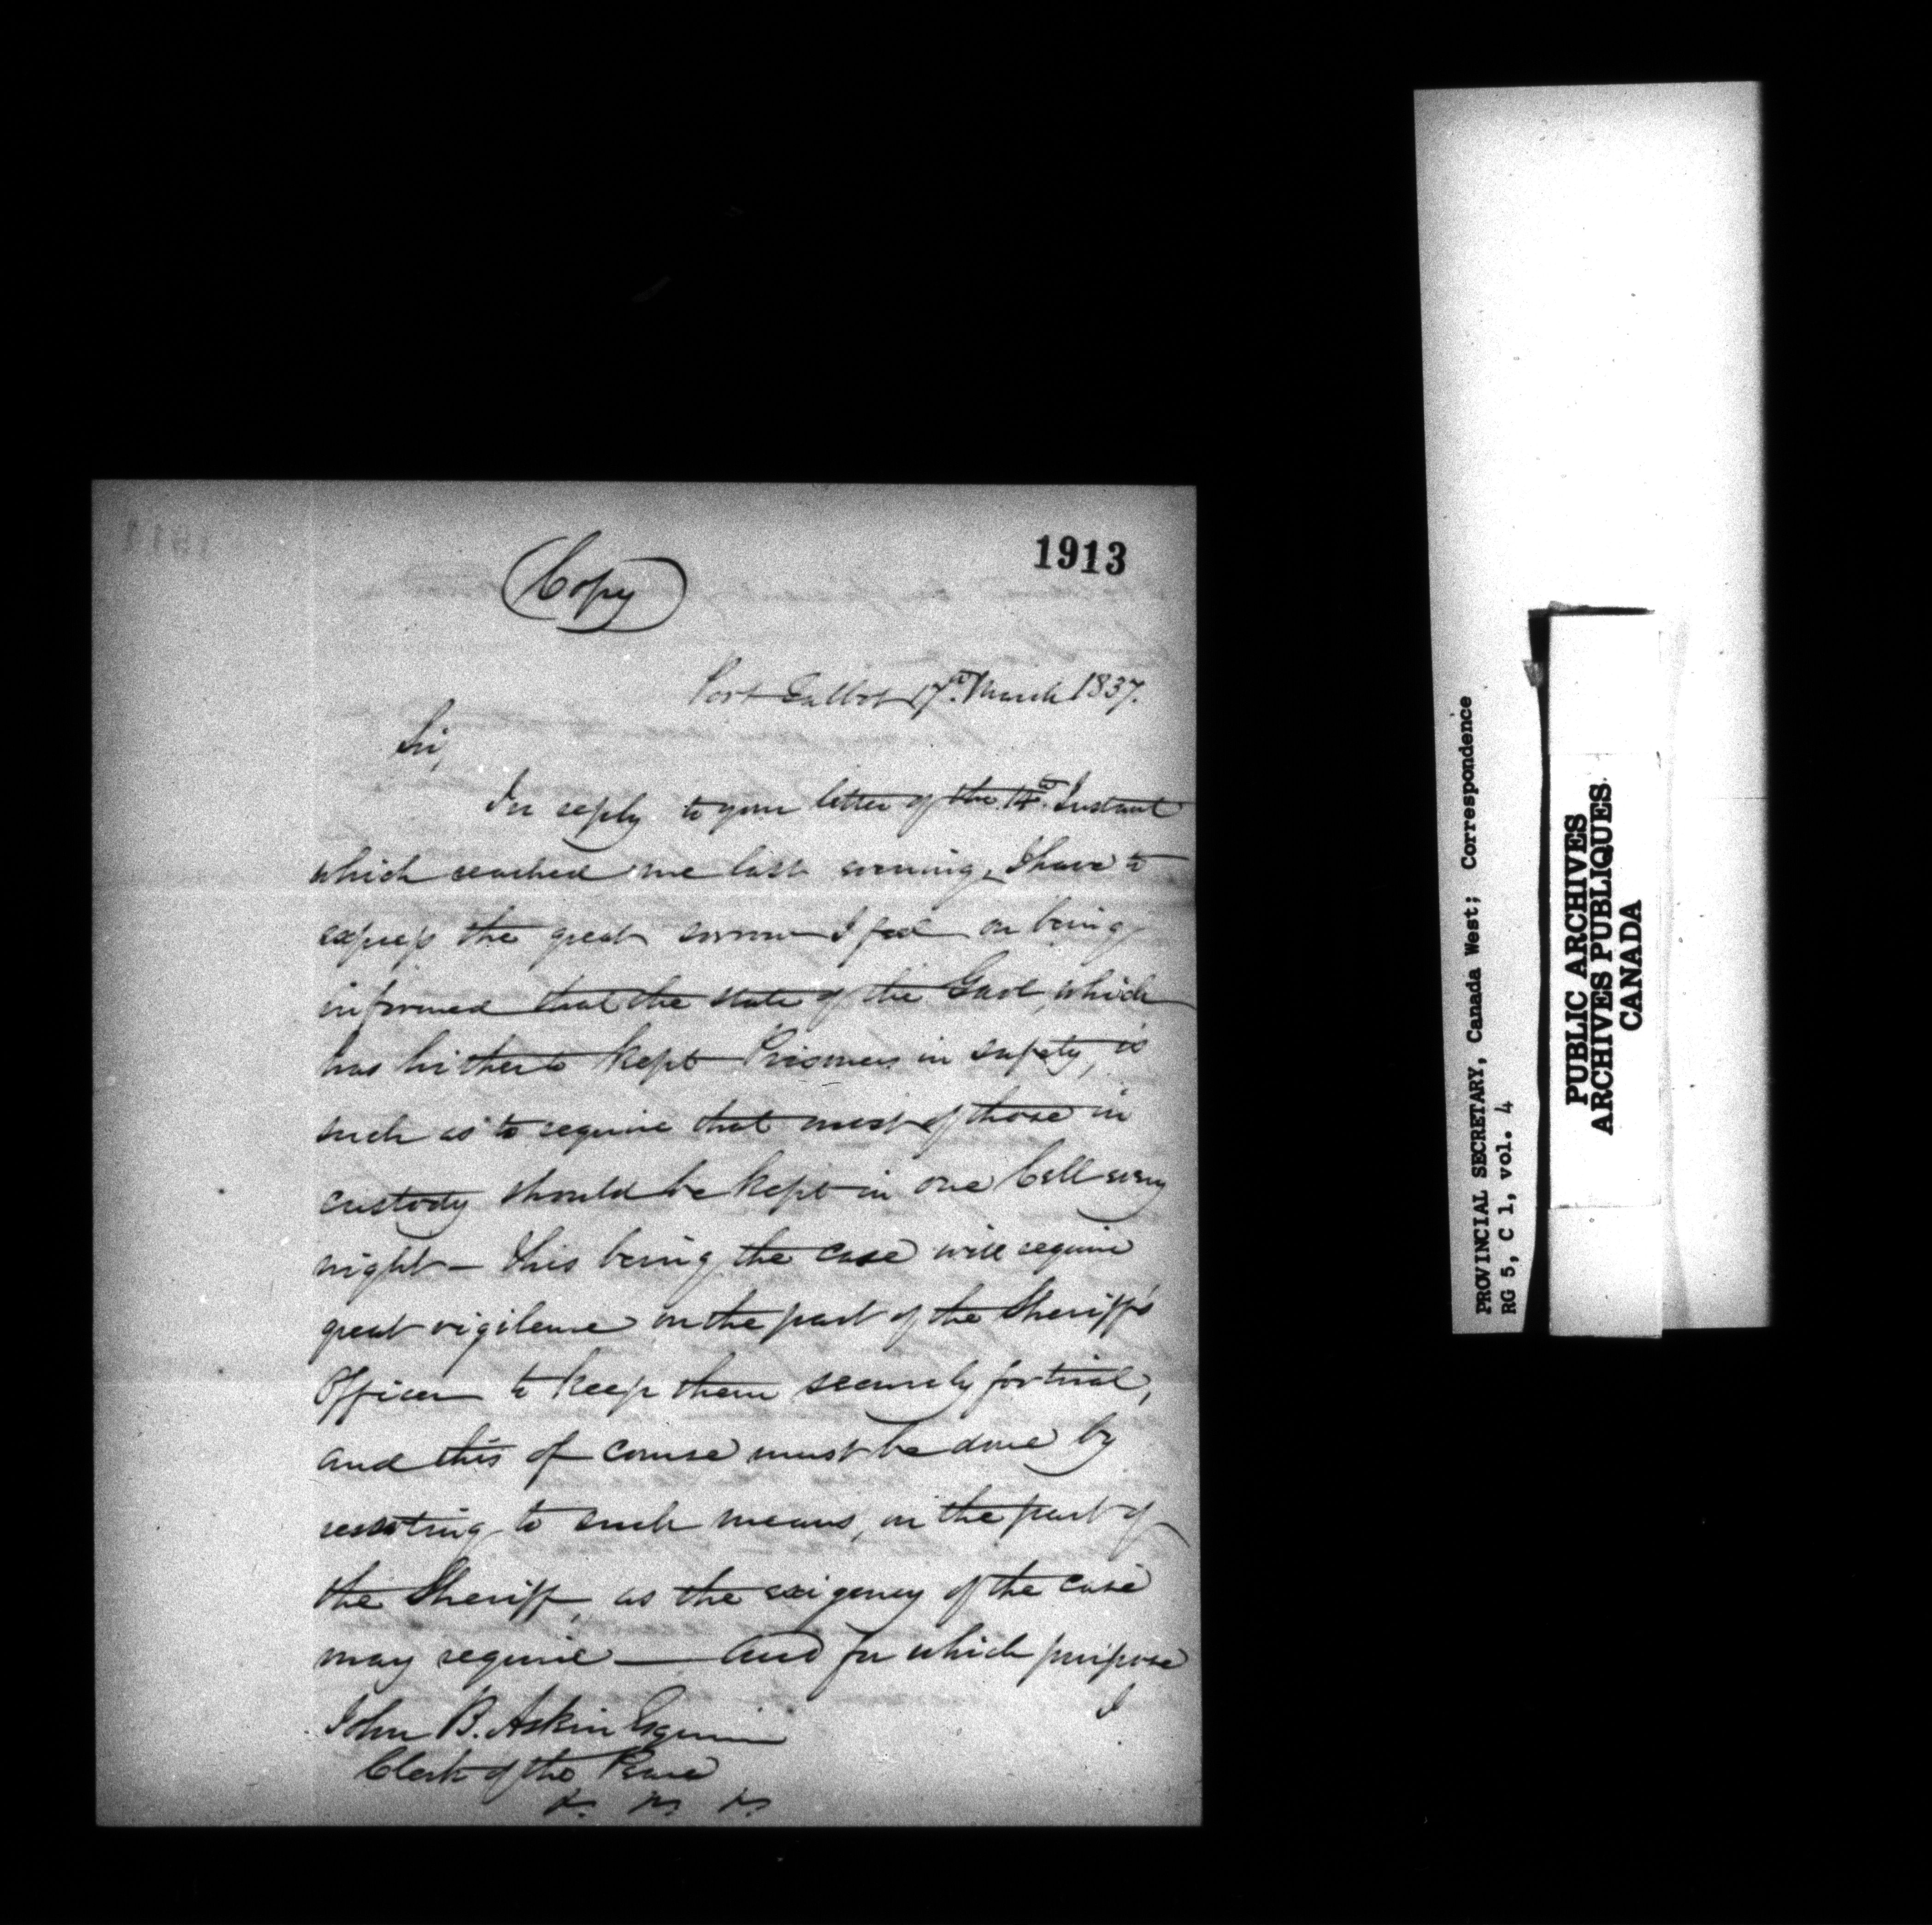 1913
(Copy)
Port Talbot 17th March 1837.
Sir,
In reply to your letter of the 14th Instant
which reached me last evening, I have to
express the great sorrow I feel on being
informed that the state of the Gaol, which
has hitherto kept Prisoners in safety, is
such as to require that most of those in
custody should be kept in one Cell every
night — this being the case will require
great vigilence on the part of the Sheriff's
Officer to keep them securely for trial,
and this of course must be done by
resorting to such means, on the part of
the Sheriff, as the exigency of the case
may require — and for which purpose
I
John B. Askin Esquire
Clerk of the Peace
&c. &c. &c.
PROVINCIAL SECRETARY, Canada West; Correspondence
RG 5, C 1, vol. 4
PUBLIC ARCHIVES
ARCHIVES PUBLIQUES
CANADA